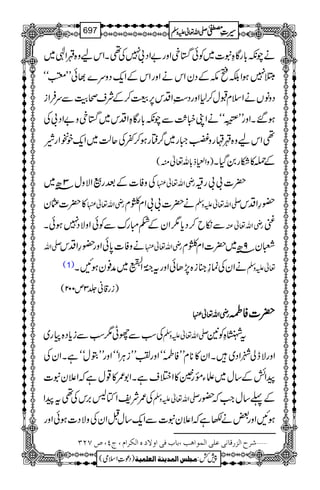 سیرتِ مصطفیٰ صلی اللہ تعالیٰ علیہ وسلم 697
نے چونکہ بارگاہ نبوت میں کوئی گستاخی اور بے ادبی نہیں کی تھی۔ اس لیے وہ قہر الٰہی میں
مبتلا نہیں ہوا بلکہ فتح مکہ کے دن اس نے اور اس کے دوسرے بھائی ’’معتب‘‘
دونوں نے اسلام قبول کر لیا اور دست اقدس پر بیعت کر کے شرف صحابیت سے سرفراز
ہو گئے۔ اور ’’عتیبہ‘‘ نے اپنی خباثت سے چونکہ بارگاہ اقدس میں گستاخی و بے ادبی کی
تھی اس لیے وہ قہر قہار و غضب جبار میں گرفتار ہو کر کفر کی حالت میں ایک خونخوار شیر
کے حملہ کا شکار بن گیا۔ (والعیاذ باللہ تعالیٰ منہ)
حضرت بی بی رقیہ رضی اللہ تعالیٰ عنہا کی وفات کے بعد ربیع الاول ۳ھ میں
حضور اقدس صلی اللہ تعالیٰ علیہ وسلم نے حضرت بی بی ام کلثوم رضی اللہ تعالیٰ عنہا کا حضرت عثمان
غنی رضی اللہ تعالیٰ عنہ سے نکاح کر دیا مگر ان کے شکم مبارک سے کوئی اولاد نہیں ہوئی۔
شعبان ۹ھ میں حضرت ام کلثوم رضی اللہ تعالیٰ عنہا نے وفات پائی اور حضور اقدس صلی اللہ
تعالیٰ علیہ وسلم نے ان کی نماز جنازہ پڑھائی اور یہ جنۃ البقیع میں مدفون ہوئیں۔ (1)
(زرقانی جلد۳ ص۲۰۰)
حضرت فاطمہ رضی اللہ تعالیٰ عنہا
یہ شہنشاہ کونین صلی اللہ تعالیٰ علیہ وسلم کی سب سے چھوٹی مگر سب سے زیادہ پیاری
اور لاڈلی شہزادی ہیں۔ ان کا نام ’’فاطمہ‘‘ اور لقب ’’زہرا‘‘ اور ’’بتول‘‘ ہے۔ ان کی
پیدائش کے سال میں علماء مؤرخین کا اختلاف ہے۔ ابو عمر کا قول ہے کہ اعلان نبوت
کے پہلے سال جب کہ حضور صلی اللہ تعالیٰ علیہ وسلم کی عمر شریف اکتالیس برس کی تھی یہ پیدا
ہوئیں اور بعض نے لکھا ہے کہ اعلان نبوت سے ایک سال قبل ان کی ولادت ہوئی اور
شرح الزرقانی علی المواھب،باب فی اولادہ الکرام،ج٤،ص۳۲۷
پیش کش: مجلس المدینة العلمیة (دعوتِ اسلامی)